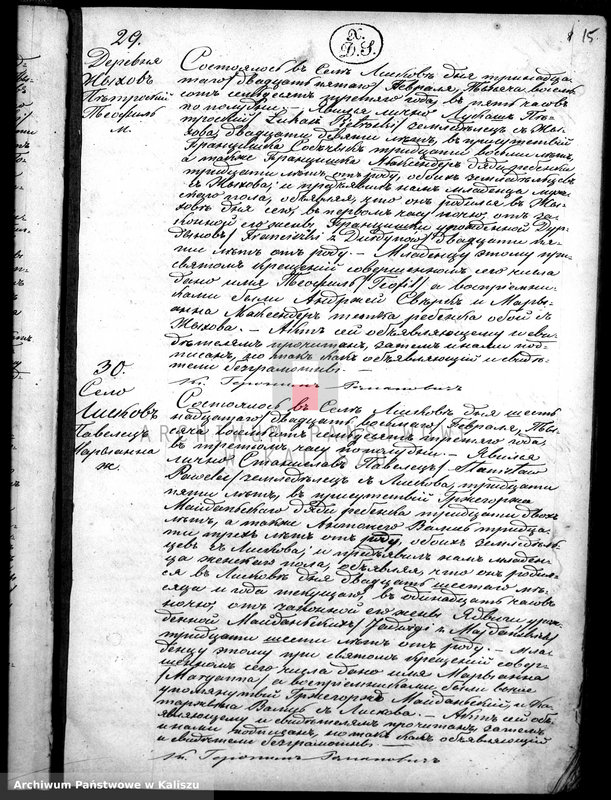 15
X.
D. S.
29.
Деревня
Жыховъ
Пѣтроский
Теофиль
м.
Состоялось въ Селѣ Лисковъ дня тринадца
таго/двадцать пятаго/Февраля, тысяча восемь
сотъ семьдесятъ третьяго года, въ пять часовъ
по полудни. — Явился лично Лукашъ Пѣ
троский/Łukasz Piotroski/земледѣлецъ съ Жы
хова, двадцати девяти лѣтъ, въ присутствіи
Францишка тридцати восьми лѣтъ,
а также Францишка дяди ребенка
тридцати лѣтъ отъ роду, обоихъ земледѣльцевъ
съ Жыхова; и предъявилъ намъ младенца муж
скаго пола, объявляя, что онъ родился въ Жы
ховѣ дня сего, въ первомъ часу ночью, отъ за
конной его жены Францишки урожденной Дур
/Franciszki z /двадцати пя
ти лѣтъ отъ роду. — Младенцу этому при
святомъ крещеніи совершенномъ сего числа
дано имя Теофиль/Teofil/, а воспріемни
ками были Андржей и Марьян
на тётка ребенка обои съ
Жыхова. — Актъ сей объявляющему и сви
дѣтелямъ прочитанъ, затемъ и нами под
писанъ, но такъ какъ объявляющій и свидѣ
тели безграмотны. —
Кс. Геронимъ
30.
Село
Лисковъ
Павелецъ
Марьянна
ж.
Состоялось въ Селѣ Лисковъ дня шест
надцатаго/двадцать восьмаго/Февраля, Ты
сяча восемьсотъ семьдесятъ третьяго года,
въ третьемъ часу по полудни. — Явился
лично Станиславъ Павелецъ/Stanisław
Pawelec/земледѣлецъ съ Лискова, тридцати
пяти лѣтъ, въ присутствіи Гржегоржа
Майданьскаго дяди ребенка тридцати двухъ
лѣтъ, а также Антонего тридца
ти трехъ лѣтъ отъ роду, обоихъ земледѣль
цевъ съ Лискова; и предъявилъ намъ младен
ца женскаго пола, объявляя, что онъ родил
ся въ Лисковѣ дня двадцать шестаго мѣ
сяца и года текущаго, въ одинадцать часовъ
ночью, отъ законной его жены Ядвиги урож
денной Майданьскихъ/Jadwigi z Majdańskich/
тридцати шести лѣтъ отъ роду. — Мла
денцу этому при святомъ крещеніи совер
шенномъ сего числа дано имя Марьянна
/Maryanna/ а воспріемниками были выше
упомянутый Гржегоржъ Майданьскій, и Ка
таржина съ Лискова. — Актъ сей объ
являющему и свидѣтелямъ прочитанъ, затемъ
и нами подписанъ, но такъ какъ объявляющій
и свидѣтели безграмотны. —
Кс. Геронимъ
ARCHIWUM PAŃSTWOWE
W KALISZU
Archiwum Państwowe w Kaliszu